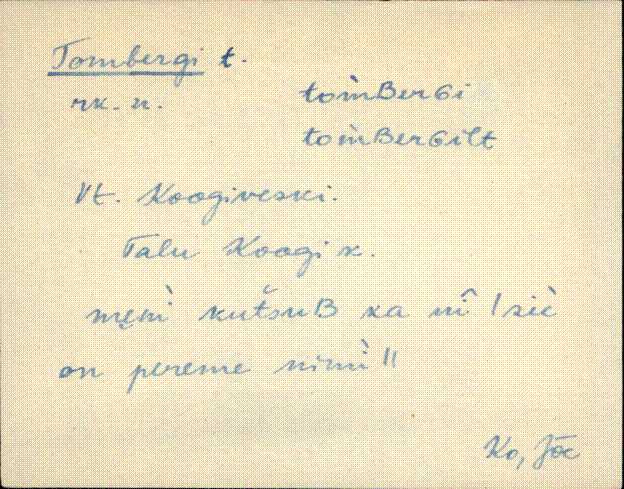 Tombergi t.
rk. n. tom̀BerGi
tom̀BerGilt
Vt. Koogiveski.
Talu Koogi k.
męni kut̆suB ka nî! siè
on pereme nimì!!
Ko, Jõe